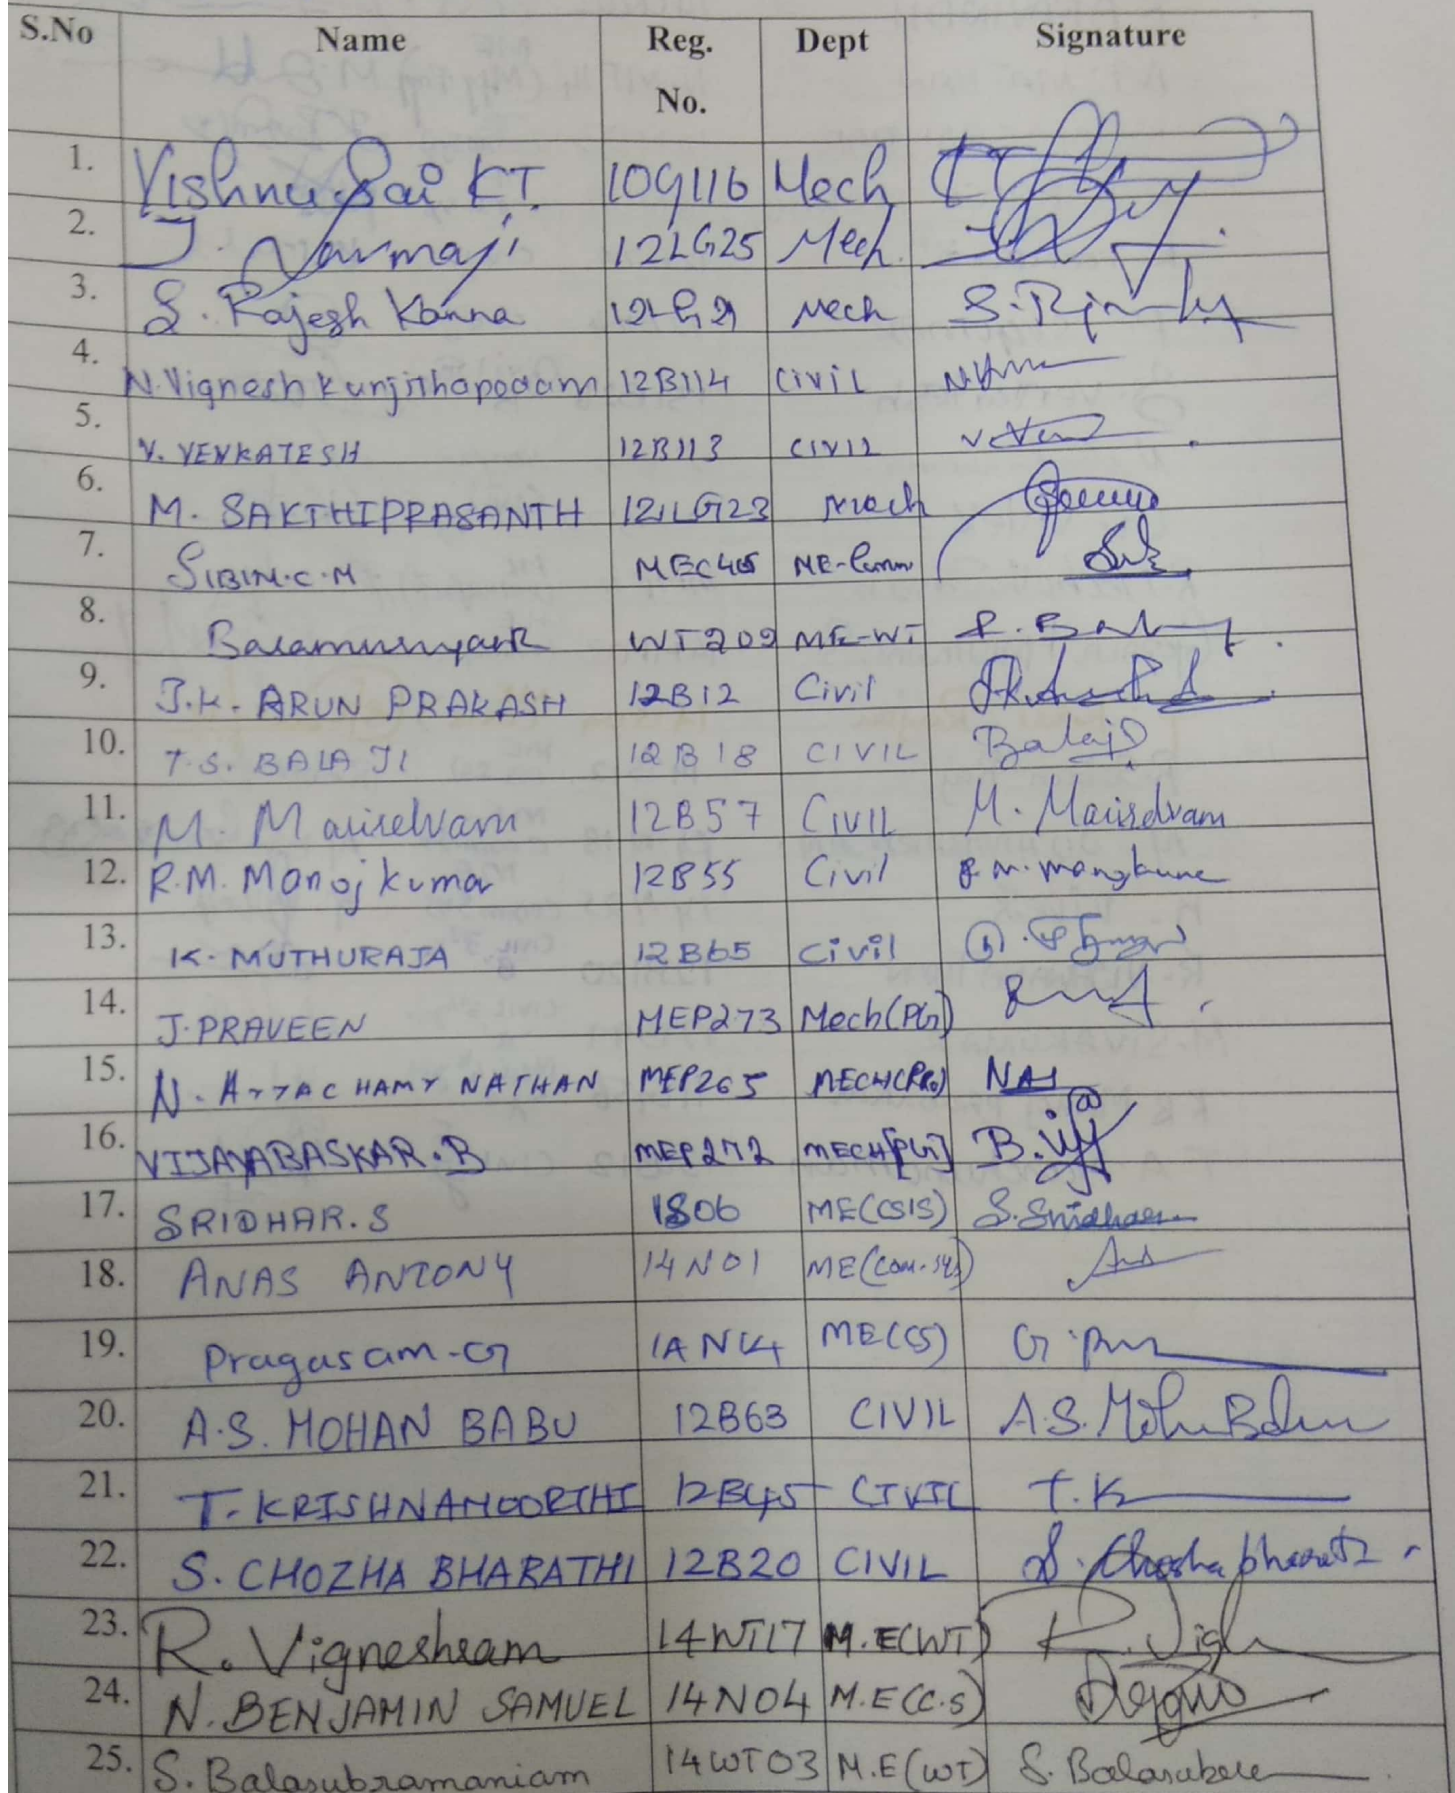 S.No Name Reg. No. Dept Signature
1. Vishnu Sai K.T. 10G116 Mech
2. J. Narmaji 12LG25 Mech
3. S. Rajesh Kanna Mech
4. N. Vignesh Kunjithapodam 12B114 Civil
5. V. VENKATESH 12B113 CIVIL
6. M. SAKTHIPRASANTH 12LG23 Mech
7. SIBIN.C.M ME-Comm
8. WT209 ME-WT
9. J.K. ARUN PRAKASH 12B12 Civil
10. T.S. BALAJI 12B18 CIVIL Balaji
11. M. Mariselvam 12B57 CIVIL M. Mariselvam
12. R.M. Manojkumar 12B55 Civil
13. K. MUTHURAJA 12B65 Civil
14. J. PRAVEEN MEP273 Mech(PG)
15. N. AYYACHAMY NATHAN MEP265 MECH(PG)
16. VIJAYABASKAR.B MEP272 MECH[PG] B.
17. SRIDHAR.S 1S06 ME(CSIS) S. Sridhar
18. ANAS ANTONY 14N01 ME(Com.sys)
19. Pragasam-G 14N14 ME(CS)
20. A.S. MOHAN BABU 12B63 CIVIL A.S. Mohan Babu
21. T. KRISHNAMOORTHI 12B45 CIVIL T.K
22. S. CHOZHA BHARATHI 12B20 CIVIL S. Chozha bharathi
23. R. Vigneshram 14WT17 M.E(WT) R.
24. N. BENJAMIN SAMUEL 14N04 M.E(C.S)
25. S. Balasubramaniam 14WT03 M.E(WT) S.